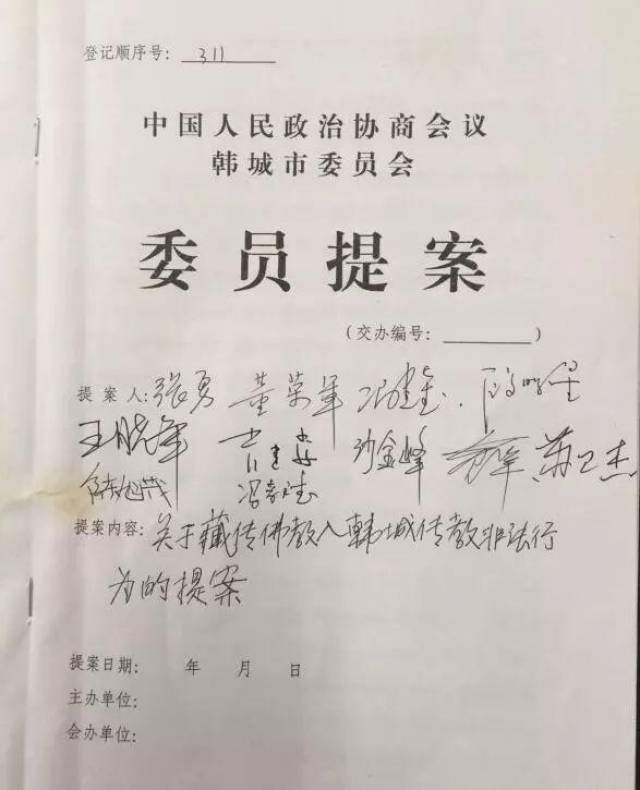 登记顺序号：311
中国人民政治协商会议
韩城市委员会
委员提案
（交办编号：          ）
提案人：张勇 董荣军 冯建宝
王晓军 沙金峰 苏卫杰
提案内容：关于藏传佛教入韩城传教非法行
为的提案
提案日期： 年 月 日
主办单位：
会办单位：